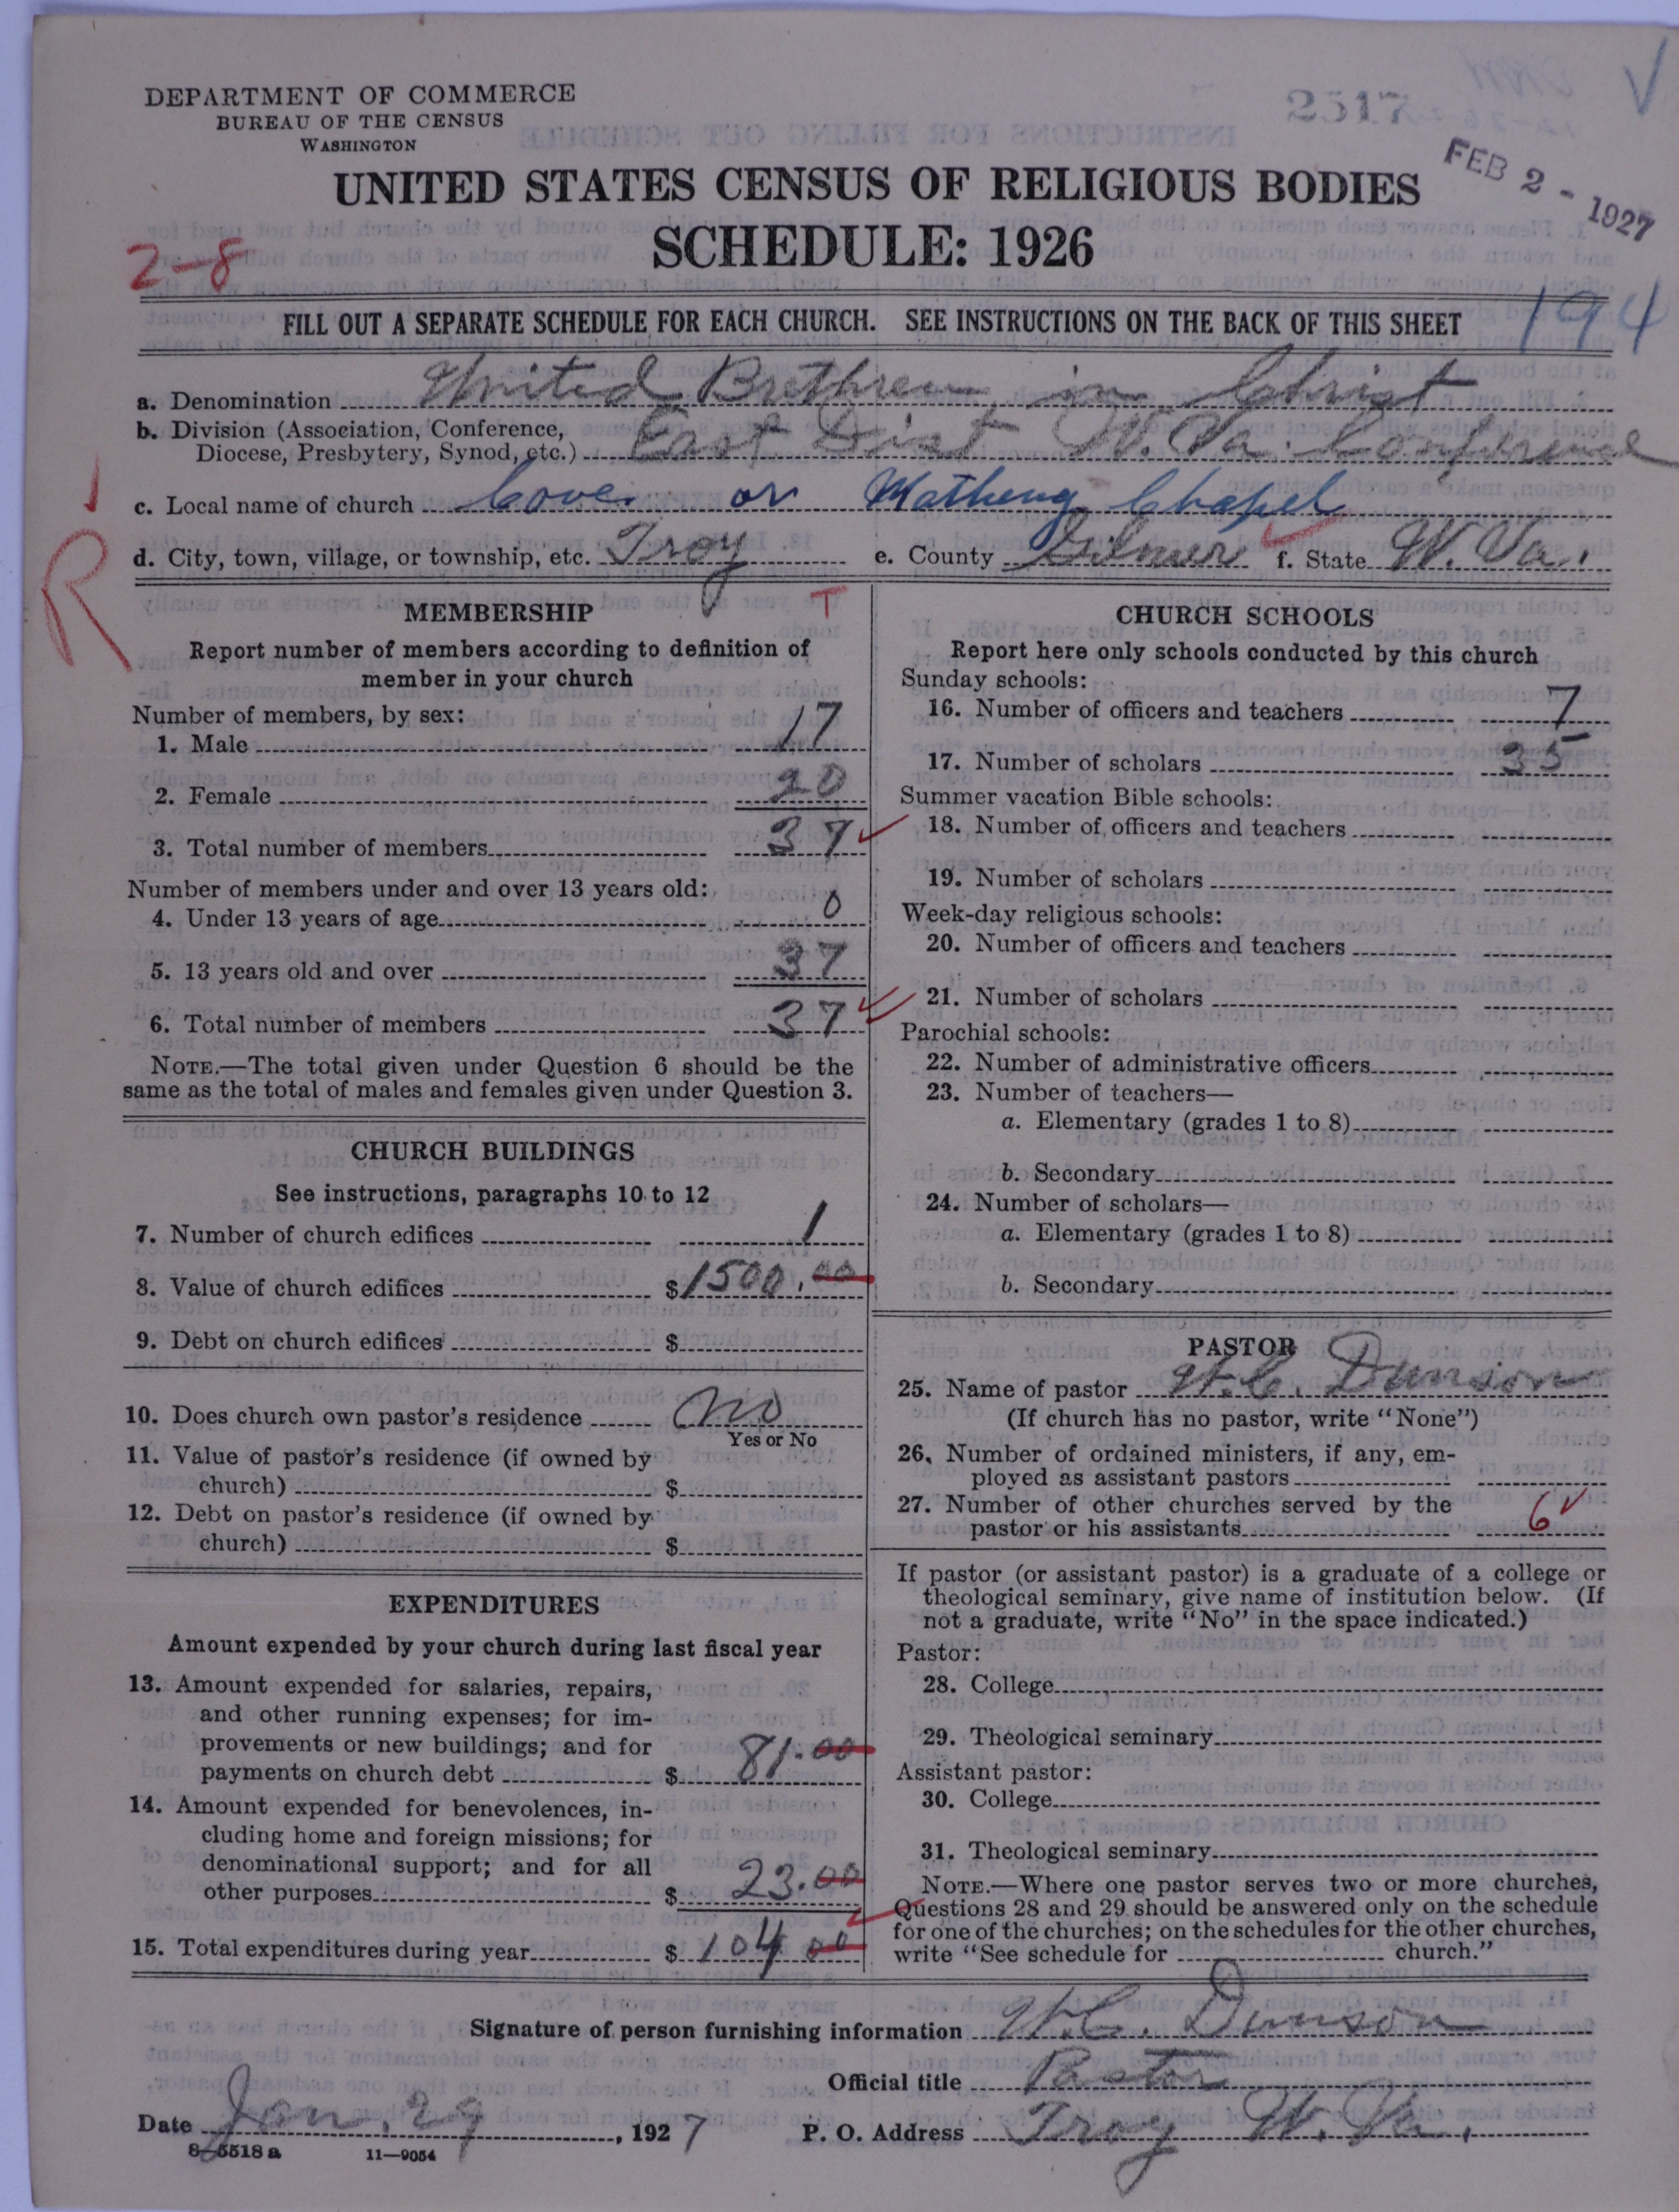 DEPARTMENT OF COMMERCE
BUREAU OF THE CENSUS
WASHINGTON
2517
FEB 2 - 1927
UNITED STATES CENSUS OF RELIGIOUS BODIES
SCHEDULE: 1926
2-8
FILL OUT A SEPARATE SCHEDULE FOR EACH CHURCH. SEE INSTRUCTIONS ON THE BACK OF THIS SHEET
194
a. Denomination United Brethren in Christ
b. Division (Association, Conference,
Diocese, Presbytery, Synod, etc.) East Dist W. Va. Conference
c. Local name of church Cove or Matheny Chapel
d. City, town, village, or township, etc. Troy e. County Gilmer f. State W. Va.
R
T
MEMBERSHIP
Report number of members according to definition of
member in your church
Number of members, by sex:
1. Male 17
2. Female 20
3. Total number of members 37
Number of members under and over 13 years old:
4. Under 13 years of age 0
5. 13 years old and over 37
6. Total number of members 37
NOTE.—The total given under Question 6 should be the
same as the total of males and females given under Question 3.
CHURCH BUILDINGS
See instructions, paragraphs 10 to 12
7. Number of church edifices 1
8. Value of church edifices $1500.00
9. Debt on church edifices $
10. Does church own pastor's residence No
Yes or No
11. Value of pastor's residence (if owned by
church) $
12. Debt on pastor's residence (if owned by
church) $
EXPENDITURES
Amount expended by your church during last fiscal year
13. Amount expended for salaries, repairs,
and other running expenses; for im-
provements or new buildings; and for
payments on church debt $ 81.00
14. Amount expended for benevolences, in-
cluding home and foreign missions; for
denominational support; and for all
other purposes $ 23.00
15. Total expenditures during year $ 104 00
CHURCH SCHOOLS
Report here only schools conducted by this church
Sunday schools:
16. Number of officers and teachers 7
17. Number of scholars 35
Summer vacation Bible schools:
18. Number of officers and teachers
19. Number of scholars
Week-day religious schools:
20. Number of officers and teachers
21. Number of scholars
Parochial schools:
22. Number of administrative officers
23. Number of teachers—
a. Elementary (grades 1 to 8)
b. Secondary
24. Number of scholars—
a. Elementary (grades 1 to 8)
b. Secondary
PASTOR
25. Name of pastor H.C. Dunson
(If church has no pastor, write "None")
26. Number of ordained ministers, if any, em-
ployed as assistant pastors
27. Number of other churches served by the
pastor or his assistants 6
If pastor (or assistant pastor) is a graduate of a college or
theological seminary, give name of institution below. (If
not a graduate, write "No" in the space indicated.)
Pastor:
28. College
29. Theological seminary
Assistant pastor:
30. College
31. Theological seminary
NOTE.—Where one pastor serves two or more churches,
Questions 28 and 29 should be answered only on the schedule
for one of the churches; on the schedules for the other churches,
write "See schedule for church."
Signature of person furnishing information H.C. Dunson
Official title Pastor
Date Jan. 29, 1927 P. O. Address Troy W. Va.
8-5518 a 11-9054